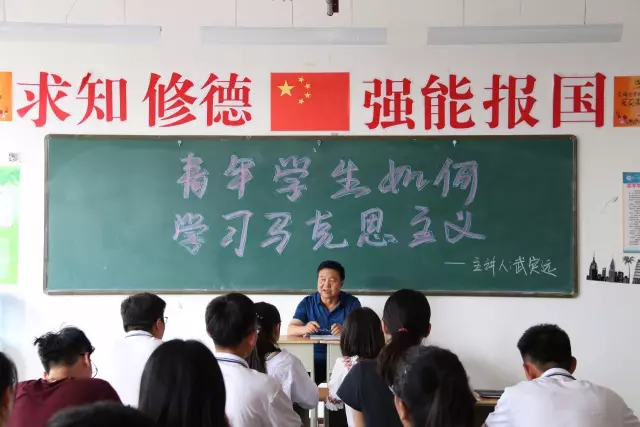 求知 修德 强能 报国
青年学生如何
学习马克思主义
——主讲人:武定远